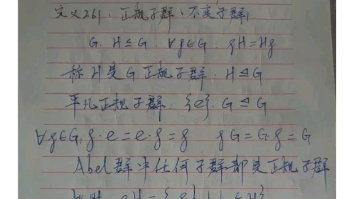 定义2.6.1: 正规子群 (不变子群)
G. H≤G ∀g∈G. gH=Hg
称 H 是 G 正规子群. H⊴G
平凡正规子群. {e}. G⊴G
∀g∈G. g·e=e·g=g gG=Gg=G
Abel群中任何子群都是正规子群